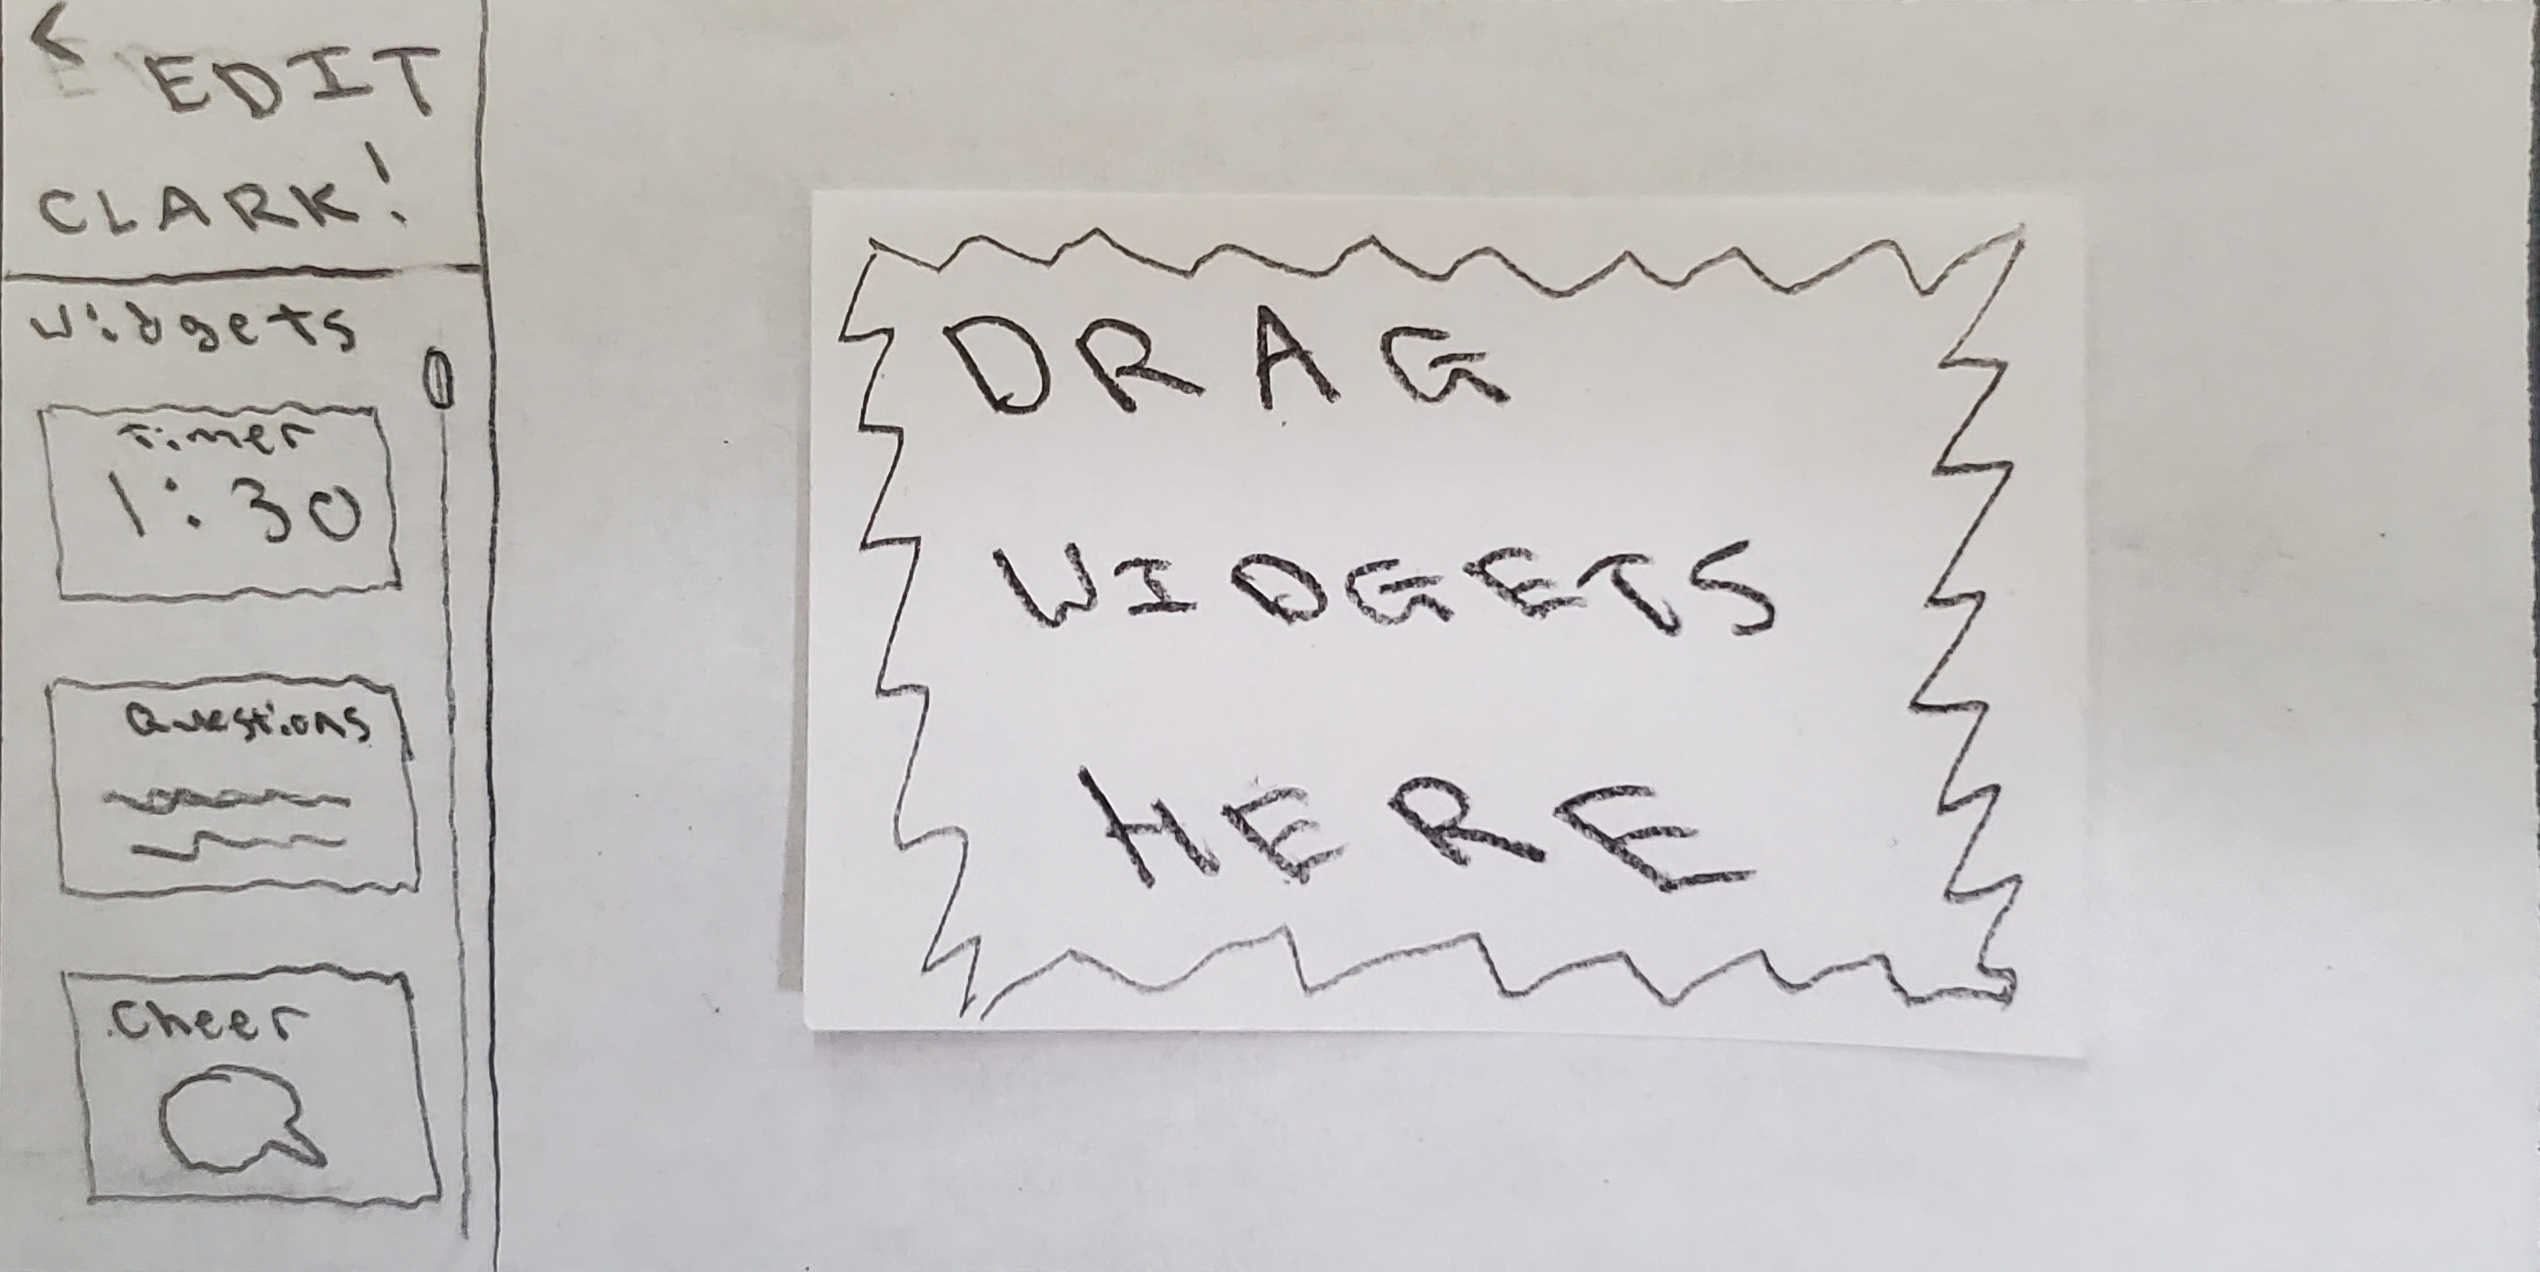 < EDIT
CLARK!
Widgets
Timer
1:30
Questions
Cheer
DRAG
WIDGETS
HERE